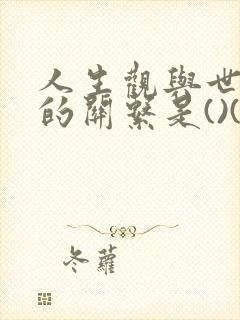 人生觀與世
的關繫是()(
冬蘿